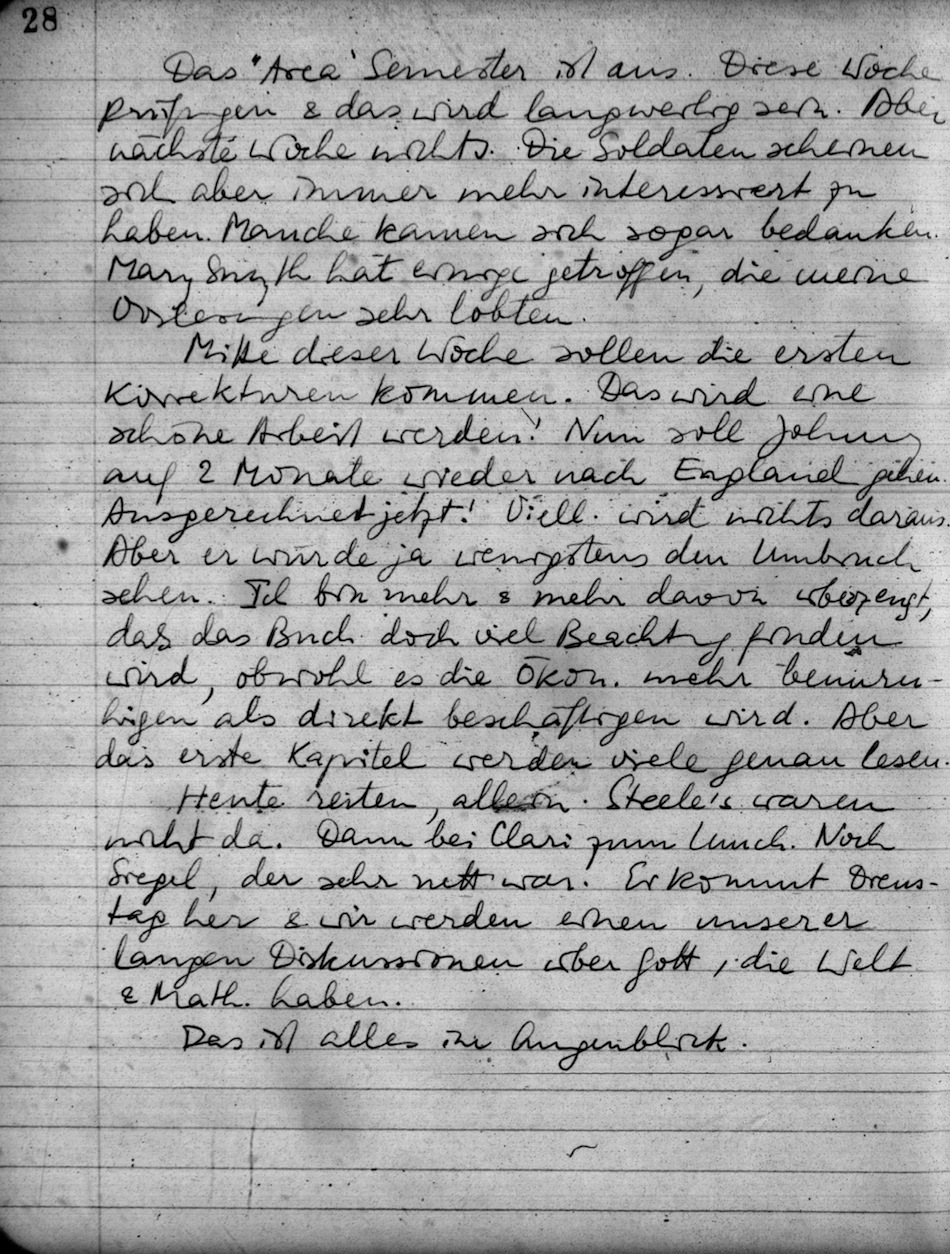 28
Das "Area" Semester ist aus. Diese Woche
Prüfungen & das wird langweilig sein. Aber
nächste Woche nichts. Die Soldaten scheinen
sich aber immer mehr interessiert zu
haben. Manche kamen sich sogar bedanken.
Mary Smyth hat einige getroffen, die meine
Vorlesungen sehr lobten.
Mitte dieser Woche sollen die ersten
Korrekturen kommen. Das wird eine
schöne Arbeit werden! Nun soll Johnny
auf 2 Monate wieder nach England gehen.
Ausgerechnet jetzt! Viell. wird nichts daraus.
Aber er würde ja wenigstens den Umbruch
sehen. Ich bin mehr & mehr davon überzeugt,
daß das Buch doch viel Beachtung finden
wird, obwohl es die Ökon. mehr beunru-
higen als direkt beschäftigen wird. Aber
das erste Kapitel werden viele genau lesen.
Heute reiten, allein. Steele's waren
nicht da. Dann bei Clari zum Lunch. Noch
Siegel, der sehr nett war. Er kommt Diens-
tag her & wir werden einen unserer
langen Diskussionen über Gott, die Welt
& Math. haben.
Das ist alles im Augenblick.